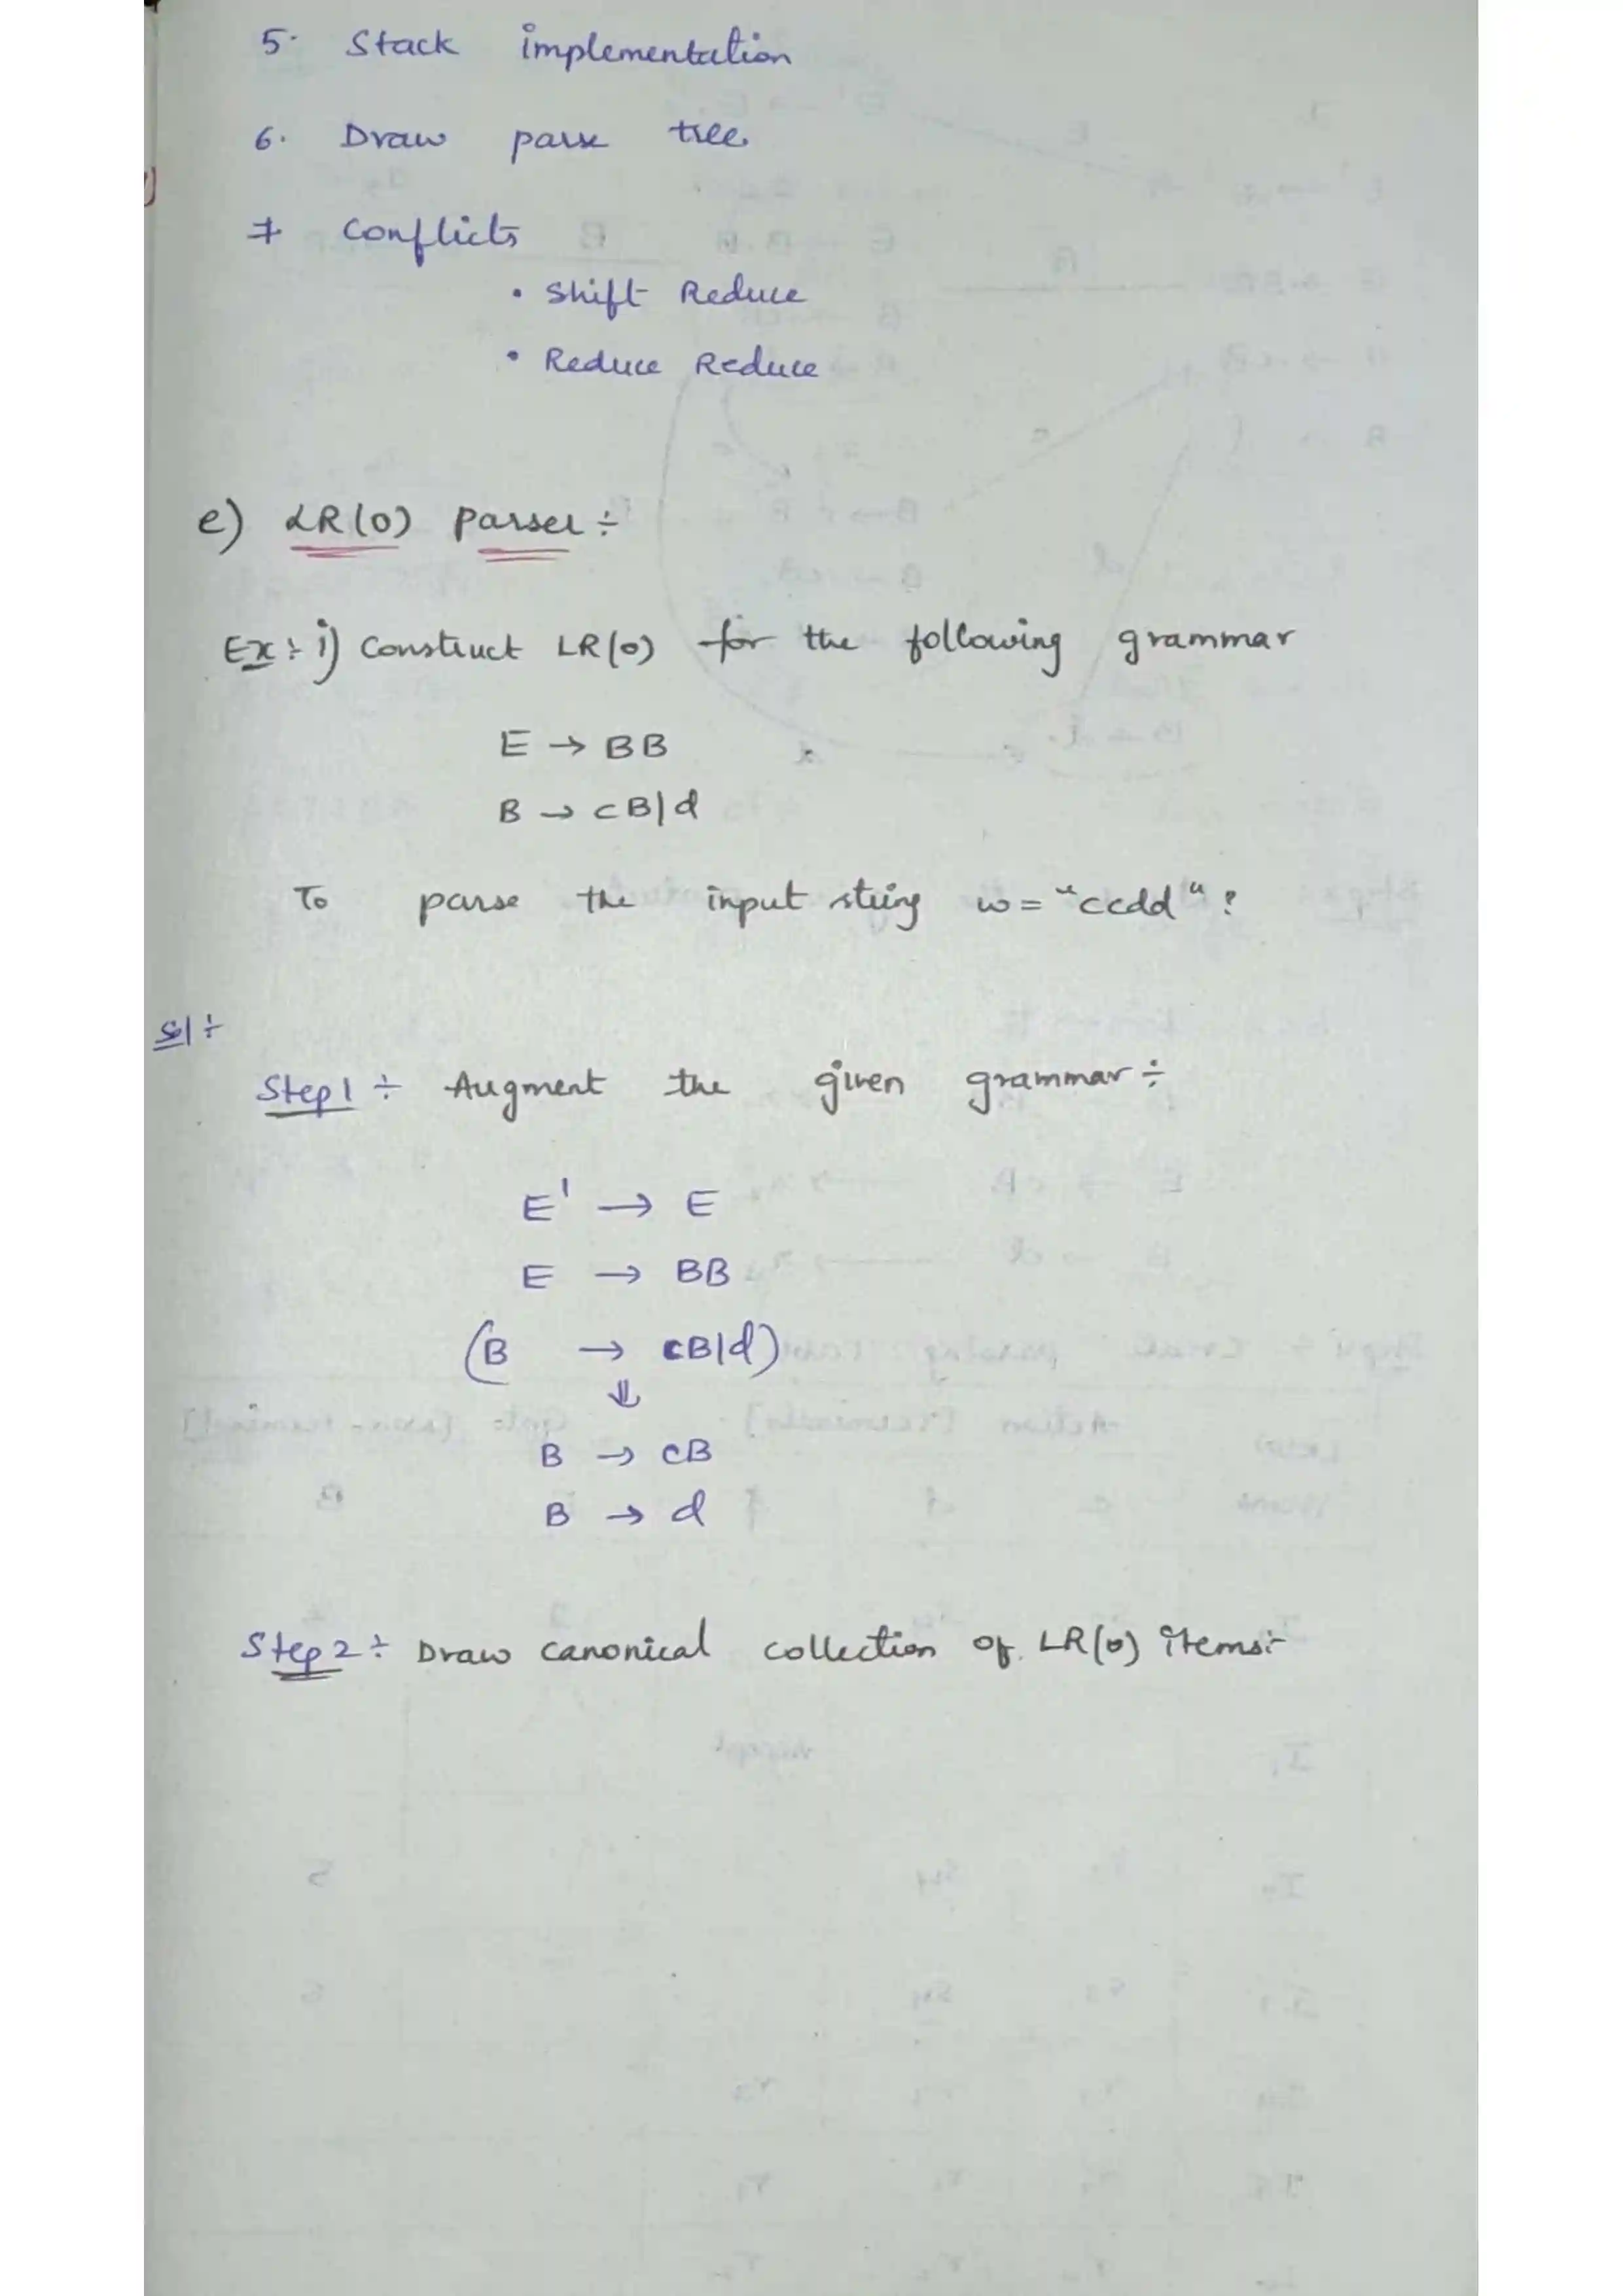 5. Stack implementation
6. Draw parse tree
7 Conflicts
• Shift Reduce
• Reduce Reduce
e) LR(0) Parser ÷
Ex:- i) Construct LR(0) for the following grammar
E → BB
B → cB|d
To parse the input string w = "ccdd" ?
Sol ÷
Step 1 ÷ Augment the given grammar ÷
E' → E
E → BB
(B → cB|d)
⇓
B → cB
B → d
Step 2 ÷ Draw canonical collection of LR(0) items:-